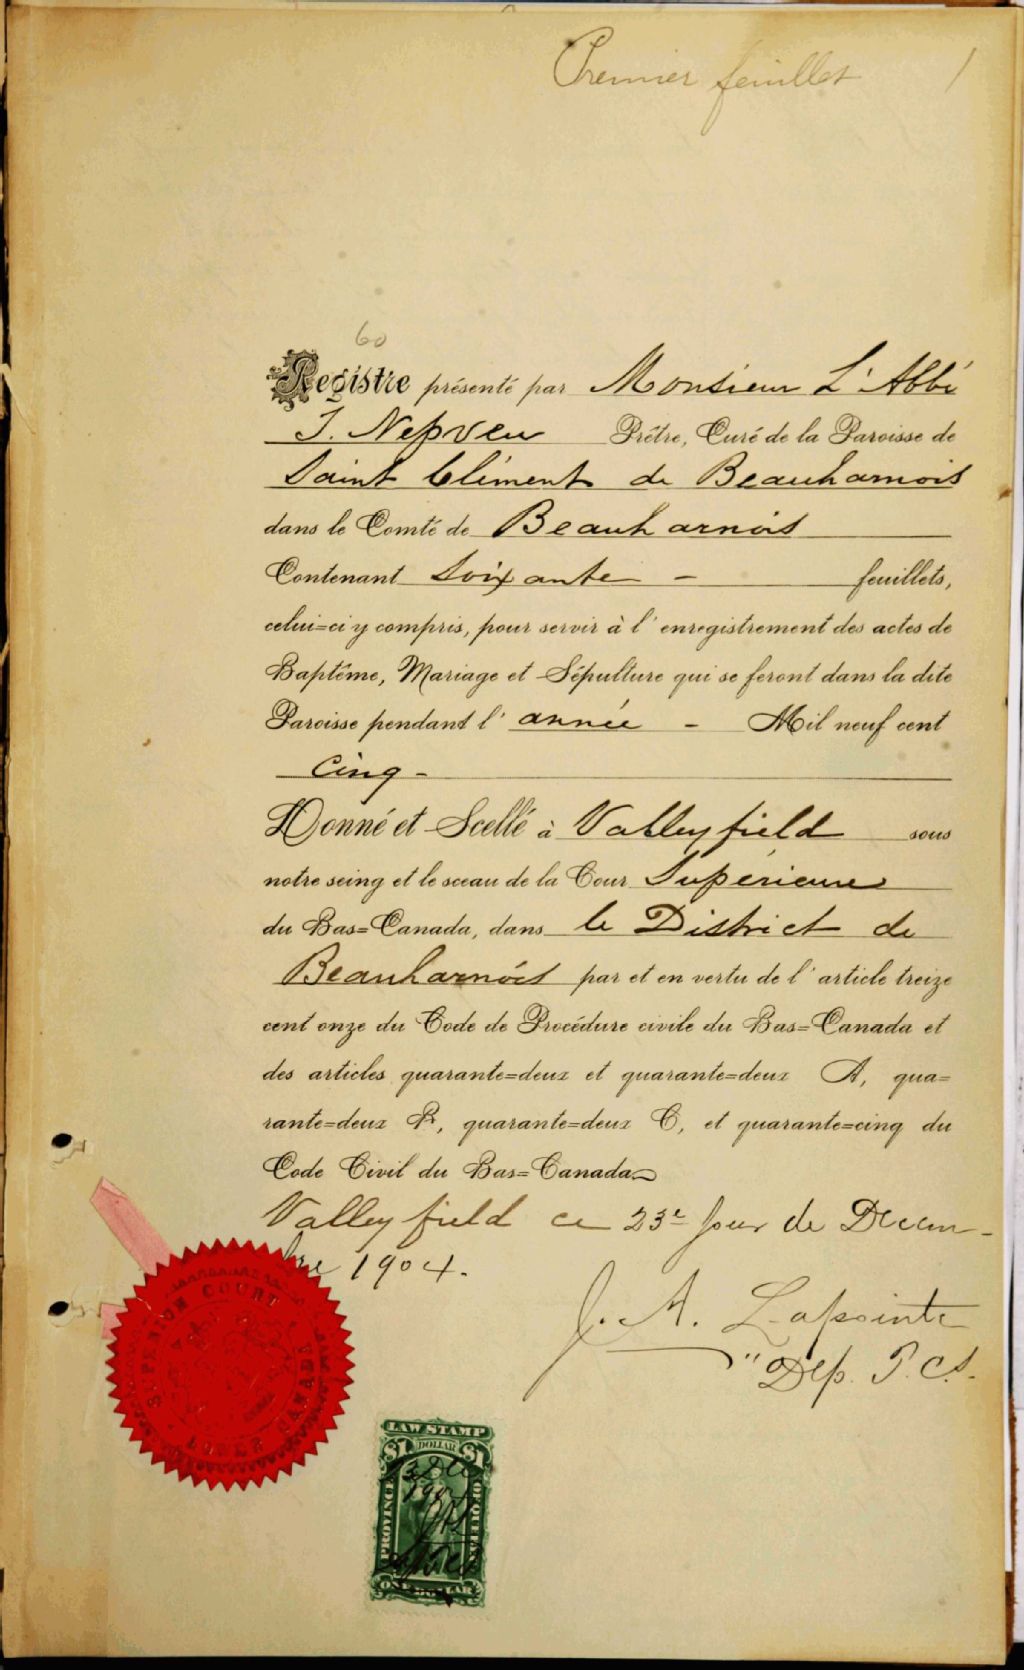 Premier feuillet 1
60
Registre présenté par Monsieur L'Abbé
J. Nepveu Prêtre, Curé de la Paroisse de
Saint Clément de Beauharnois
dans le Comté de Beauharnois
Contenant Soixante - feuillets,
celui=ci y compris, pour servir à l'enregistrement des actes de
Baptême, Mariage et Sépulture qui se feront dans la dite
Paroisse pendant l'année - Mil neuf cent
Cinq -
Donné et Scellé à Valleyfield sous
notre seing et le sceau de la Cour Supérieure
du Bas=Canada, dans le District de
Beauharnois par et en vertu de l'article treize
cent onze du Code de Procédure civile du Bas=Canada et
des articles quarante=deux et quarante=deux A, qua=
rante=deux B, quarante=deux C, et quarante=cinq du
Code Civil du Bas=Canada
Valleyfield ce 23e Jour de Decem-
bre 1904.
J. A. Lapointe
Dep. P. C. S.
SUPERIOR COURT
LOWER CANADA
LAW STAMP
$1 DOLLAR $1
PROVINCE
ONE DOLLAR